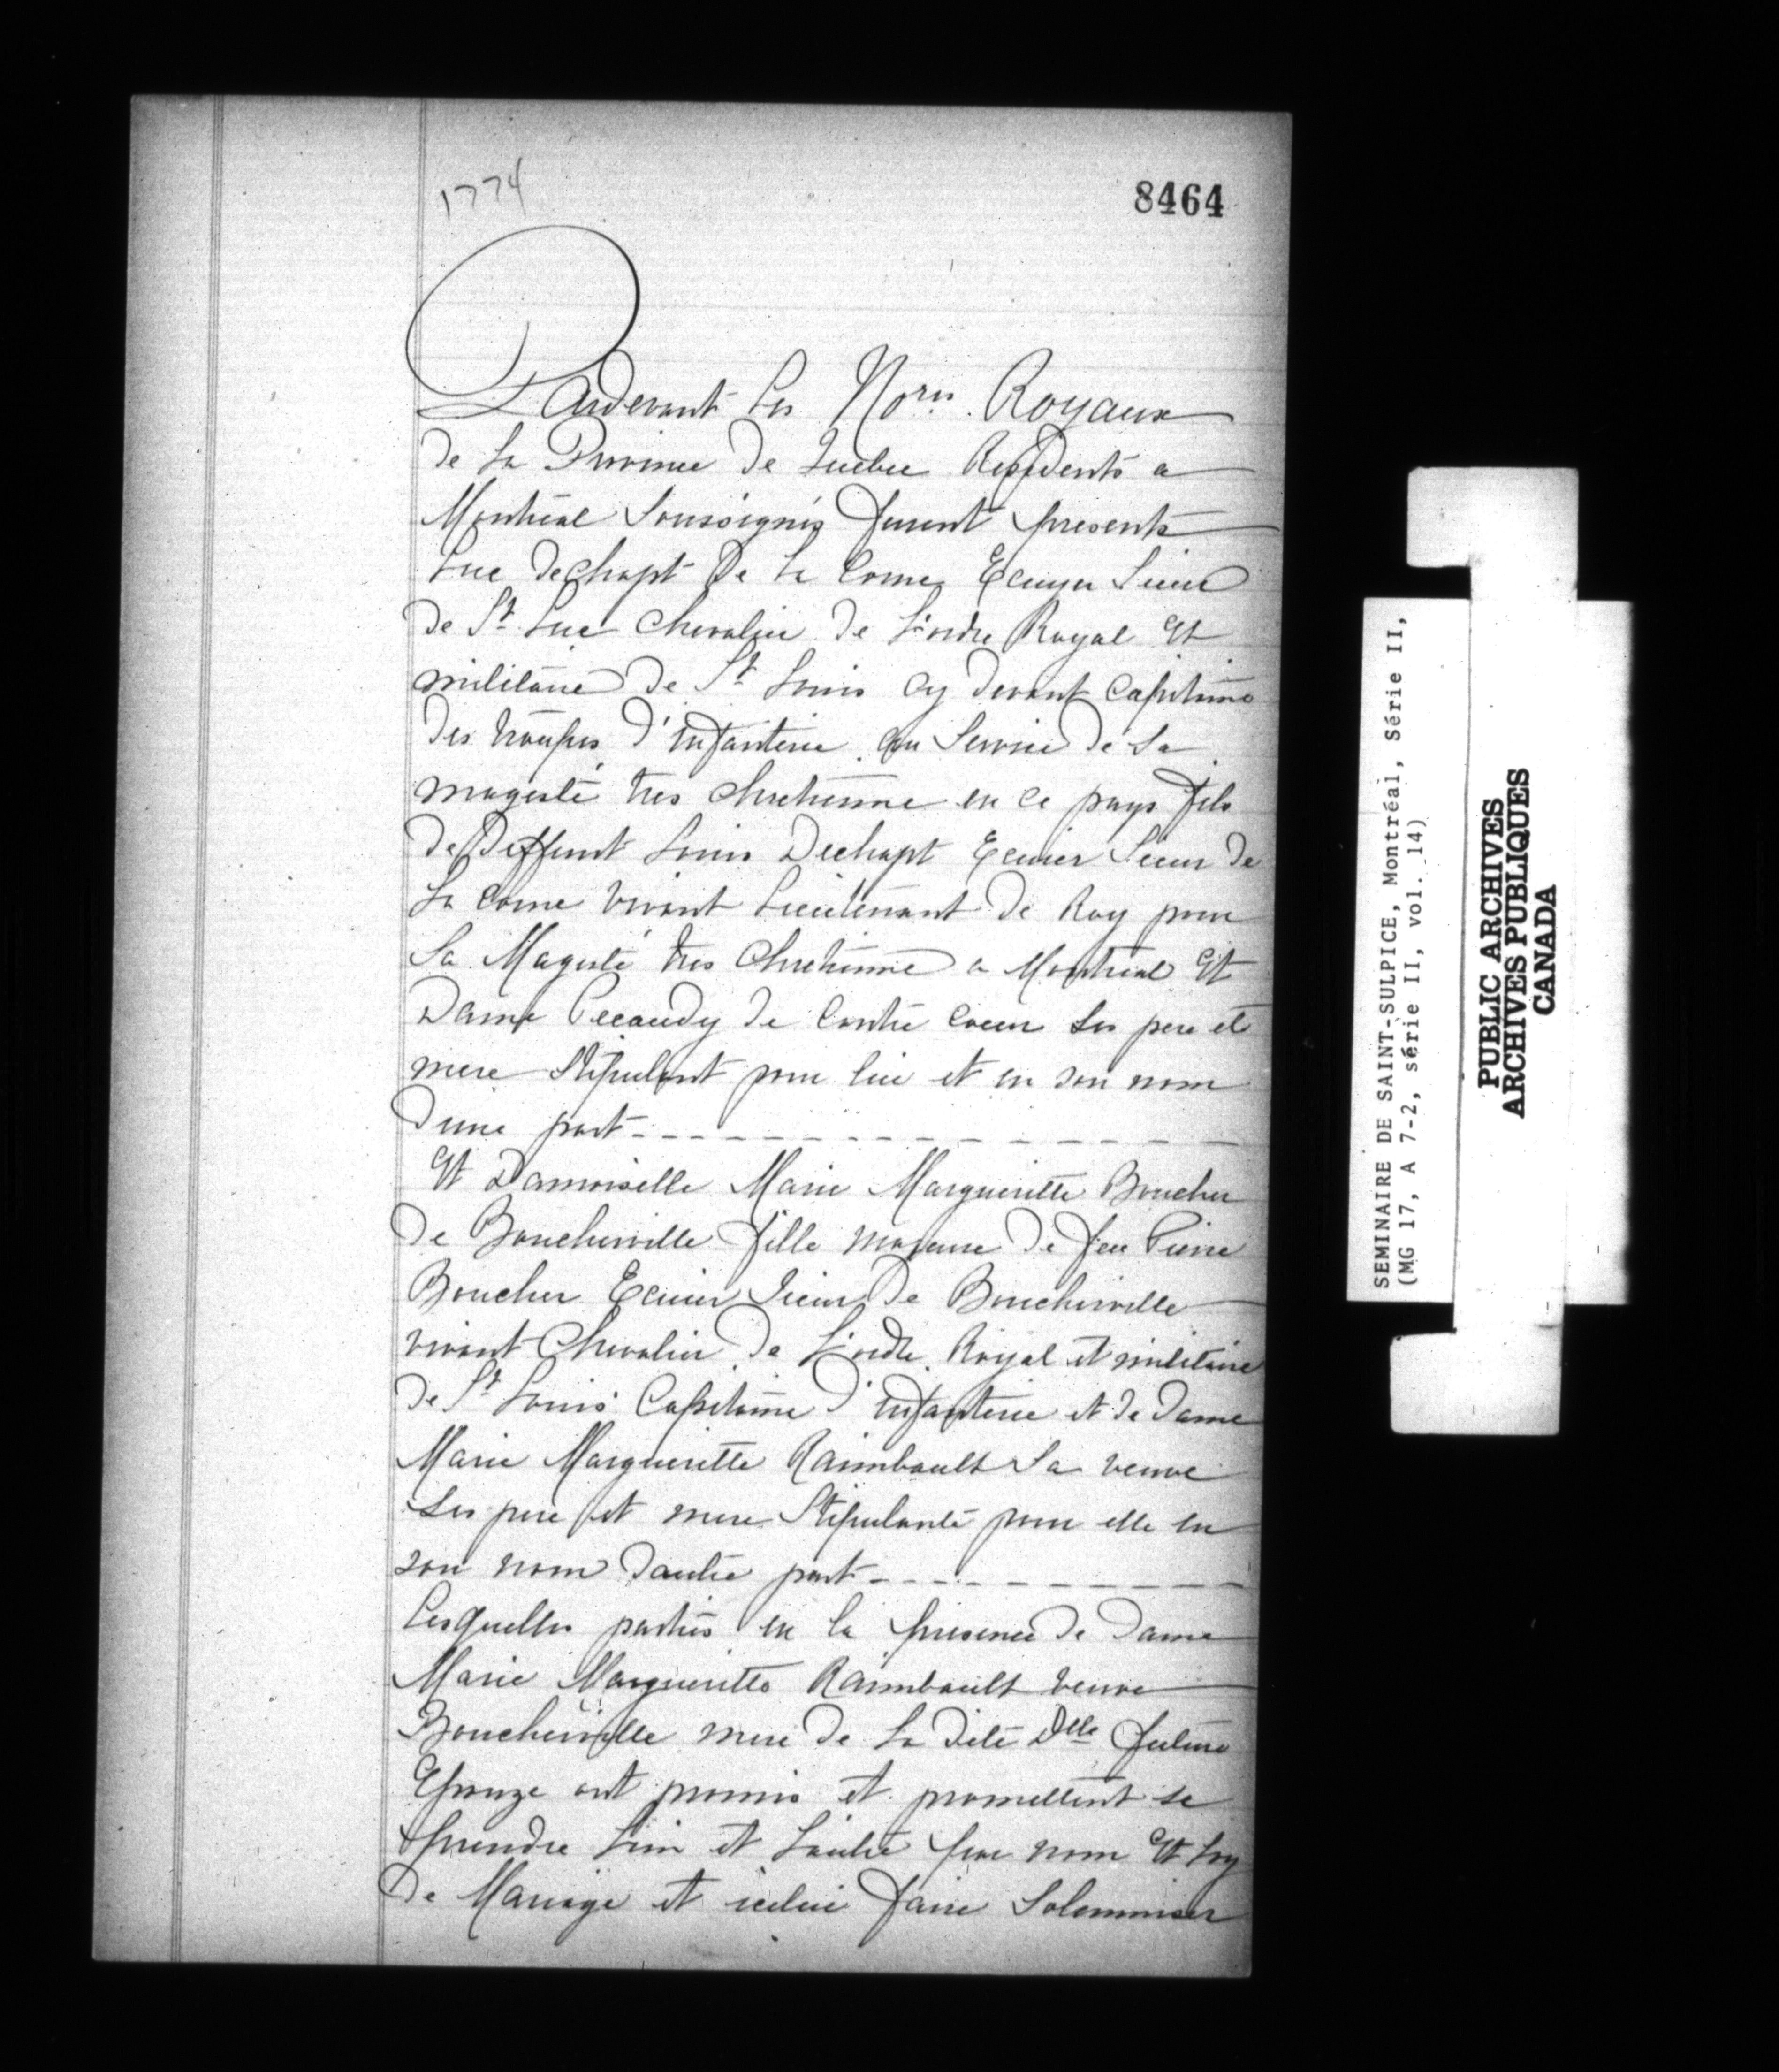 1774
8464
Pardevant Les No.res Royaux
de La Province de Quebec Residents a
Montréal Soussignés furent presents
Luc dechapt De La Corne Ecuyer Sieur
de St. Luc Chevalier de L'ordre Royal Et
militaire de St Louis cy devant Capitaine
des troupes d'infanterie au Service de Sa
magesté tres chretienne en ce pays fils
de Deffunt Louis Dechapt Ecuier Sieur de
La Corne vivant Lieutenant de Roy pour
Sa Magesté tres Chretienne a Montreal Et
Dame Pecaudy de Contre coeur Ses pere et
mere Stipulant pour lui et en son nom
d'une part
Et Damoiselle Marie Margueritte Boucher
de Boucherville fille majeure de feu Pierre
Boucher Ecuier Sieur De Boucherville
vivant Chevalier de L'ordre Royal et militaire
de St Louis Capitaine d'infanterie et de Dame
Marie Margueritte Raimbault Sa veuve
Ses pere et mere Stipulante pour elle en
son nom dautre part
Lesquelles parties en la presence de Dame
Marie Margueritte Raimbault veuve
Boucherville mere de La dite Dlle future
Epouze ont promis et promettent se
prendre L'un et L'autre par nom Et Loy
de Mariage et icelui faire Solemniser
SEMINAIRE DE SAINT-SULPICE, Montréal, Série II,
(MG 17, A 7-2, série II, vol. 14)
PUBLIC ARCHIVES
ARCHIVES PUBLIQUES
CANADA